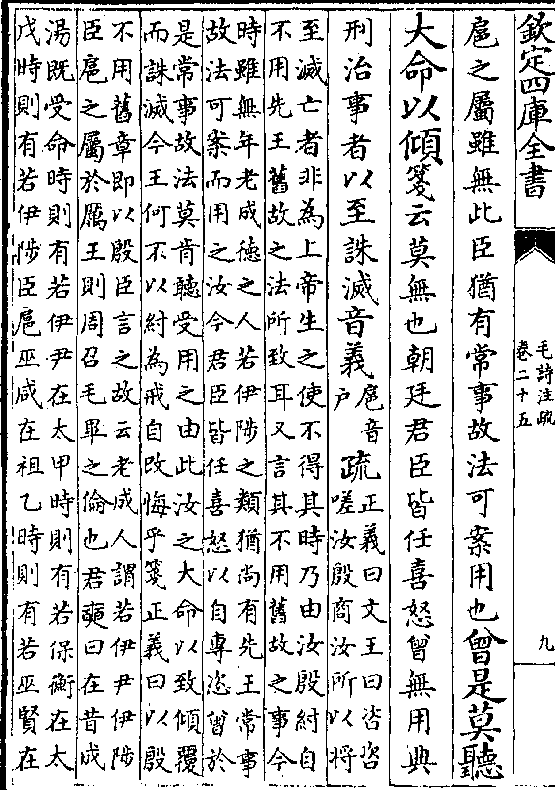 欽定四庫全書
毛詩注疏
卷二十五
九
扈之屬雖無此臣猶有常事故法可案用也曾是莫聽
大命以傾箋云莫無也朝廷君臣皆任喜怒曾無用典
刑治事者以至誅滅音義
扈音
戶
疏
正義曰文王曰咨咨
嗟汝殷商汝所以將
至滅亡者非為上帝生之使不得其時乃由汝殷紂自
不用先王舊故之法所致耳又言其不用舊故之事今
時雖無年老成德之人若伊陟之類猶尚有先王常事
故法可案而用之汝今君臣皆任喜怒以自專恣曾於
是常事故法莫肯聽受用之由此汝之大命以致傾覆
而誅滅今王何不以紂為戒自改悔乎箋正義曰以殷
不用舊章即以殷臣言之故云老成人謂若伊尹伊陟
臣扈之屬於厲王則周召毛畢之倫也君奭曰在昔成
湯既受命時則有若伊尹在太甲時則有若保衡在太
戊時則有若伊陟臣扈巫咸在祖乙時則有若巫賢在